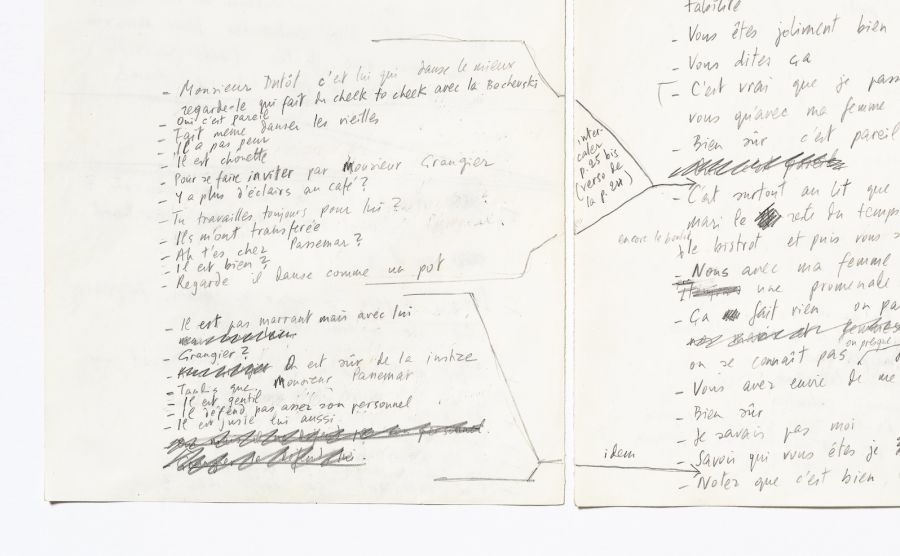 - Monsieur Dutôt c'est lui qui danse le mieux
regarde-le qui fait du cheek to cheek avec la Bochenski
- Oui c'est pareil
- Fait même danser les vieilles
- Il a pas peur
- Il est chouette
- Pour se faire inviter par Monsieur Grangier
- Y a plus d'éclairs au café ?
- Tu travailles toujours pour lui ?
- Ils m'ont transférée
- Ah t'es chez Passemar ?
- Il est bien ?
- Regarde il danse comme un pot
- Il est pas marrant mais avec lui
- Grangier ?
- On est sûr de la justice
- Tandis que Monsieur Passemar
- Il est gentil
- Il défend pas assez son personnel
- Il est juste lui aussi
inter-
caler
p. 25 bis
(verso de
la p. 24)
- Vous êtes joliment bien
- Vous dites ça
- C'est vrai que je
vous qu'avec ma femme
- Bien sûr c'est pareil
- C'est surtout au lit que
mari le reste du temps
encore le
le bistrot et puis vous
- Nous avec ma femme
une promenade
- Ça fait rien on
on presque
on se connaît pas
- Vous avez envie de me
- Bien sûr
- Je savais pas moi
idem
- Savoir qui vous êtes je
- Notez que c'est bien